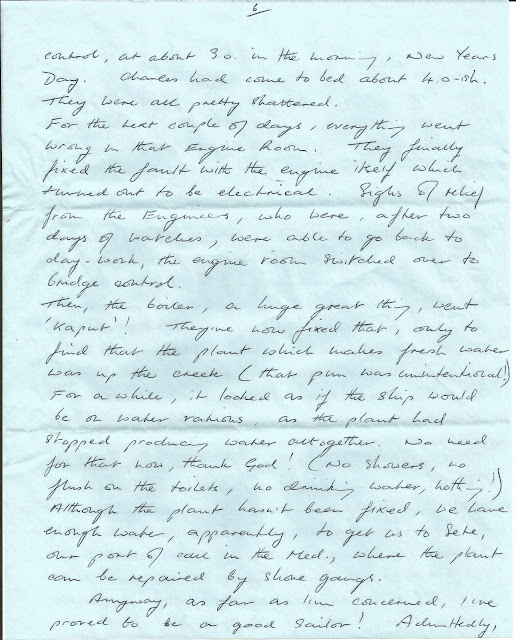 6
control, at about 3.0. in the morning, New Years
Day. Charles had come to bed about 4.0-ish.
They were all pretty shattered.
For the next couple of days, everything went
wrong in that Engine Room. They finally
fixed the fault with the engine itself which
turned out to be electrical. Sighs of relief
from the Engineers, who were, after two
days of watches, were able to go back to
day-work, the engine room switched over to
bridge control.
Then, the boiler, a huge great thing, went
'kaput'! They've now fixed that, only to
find that the plant which makes fresh water
was up the creek (that pun was unintentional!)
For a while, it looked as if the ship would
be on water rations, as the plant had
stopped producing water altogether. No need
for that now, thank God! (No showers, no
flush on the toilets, no drinking water, nothing!)
Although the plant hasn't been fixed, we have
enough water, apparently, to get us to Sete,
our port of call in the Med., where the plant
can be repaired by shore gangs.
Anyway, as far as I'm concerned, I've
proved to be a good sailor! Admittedly,